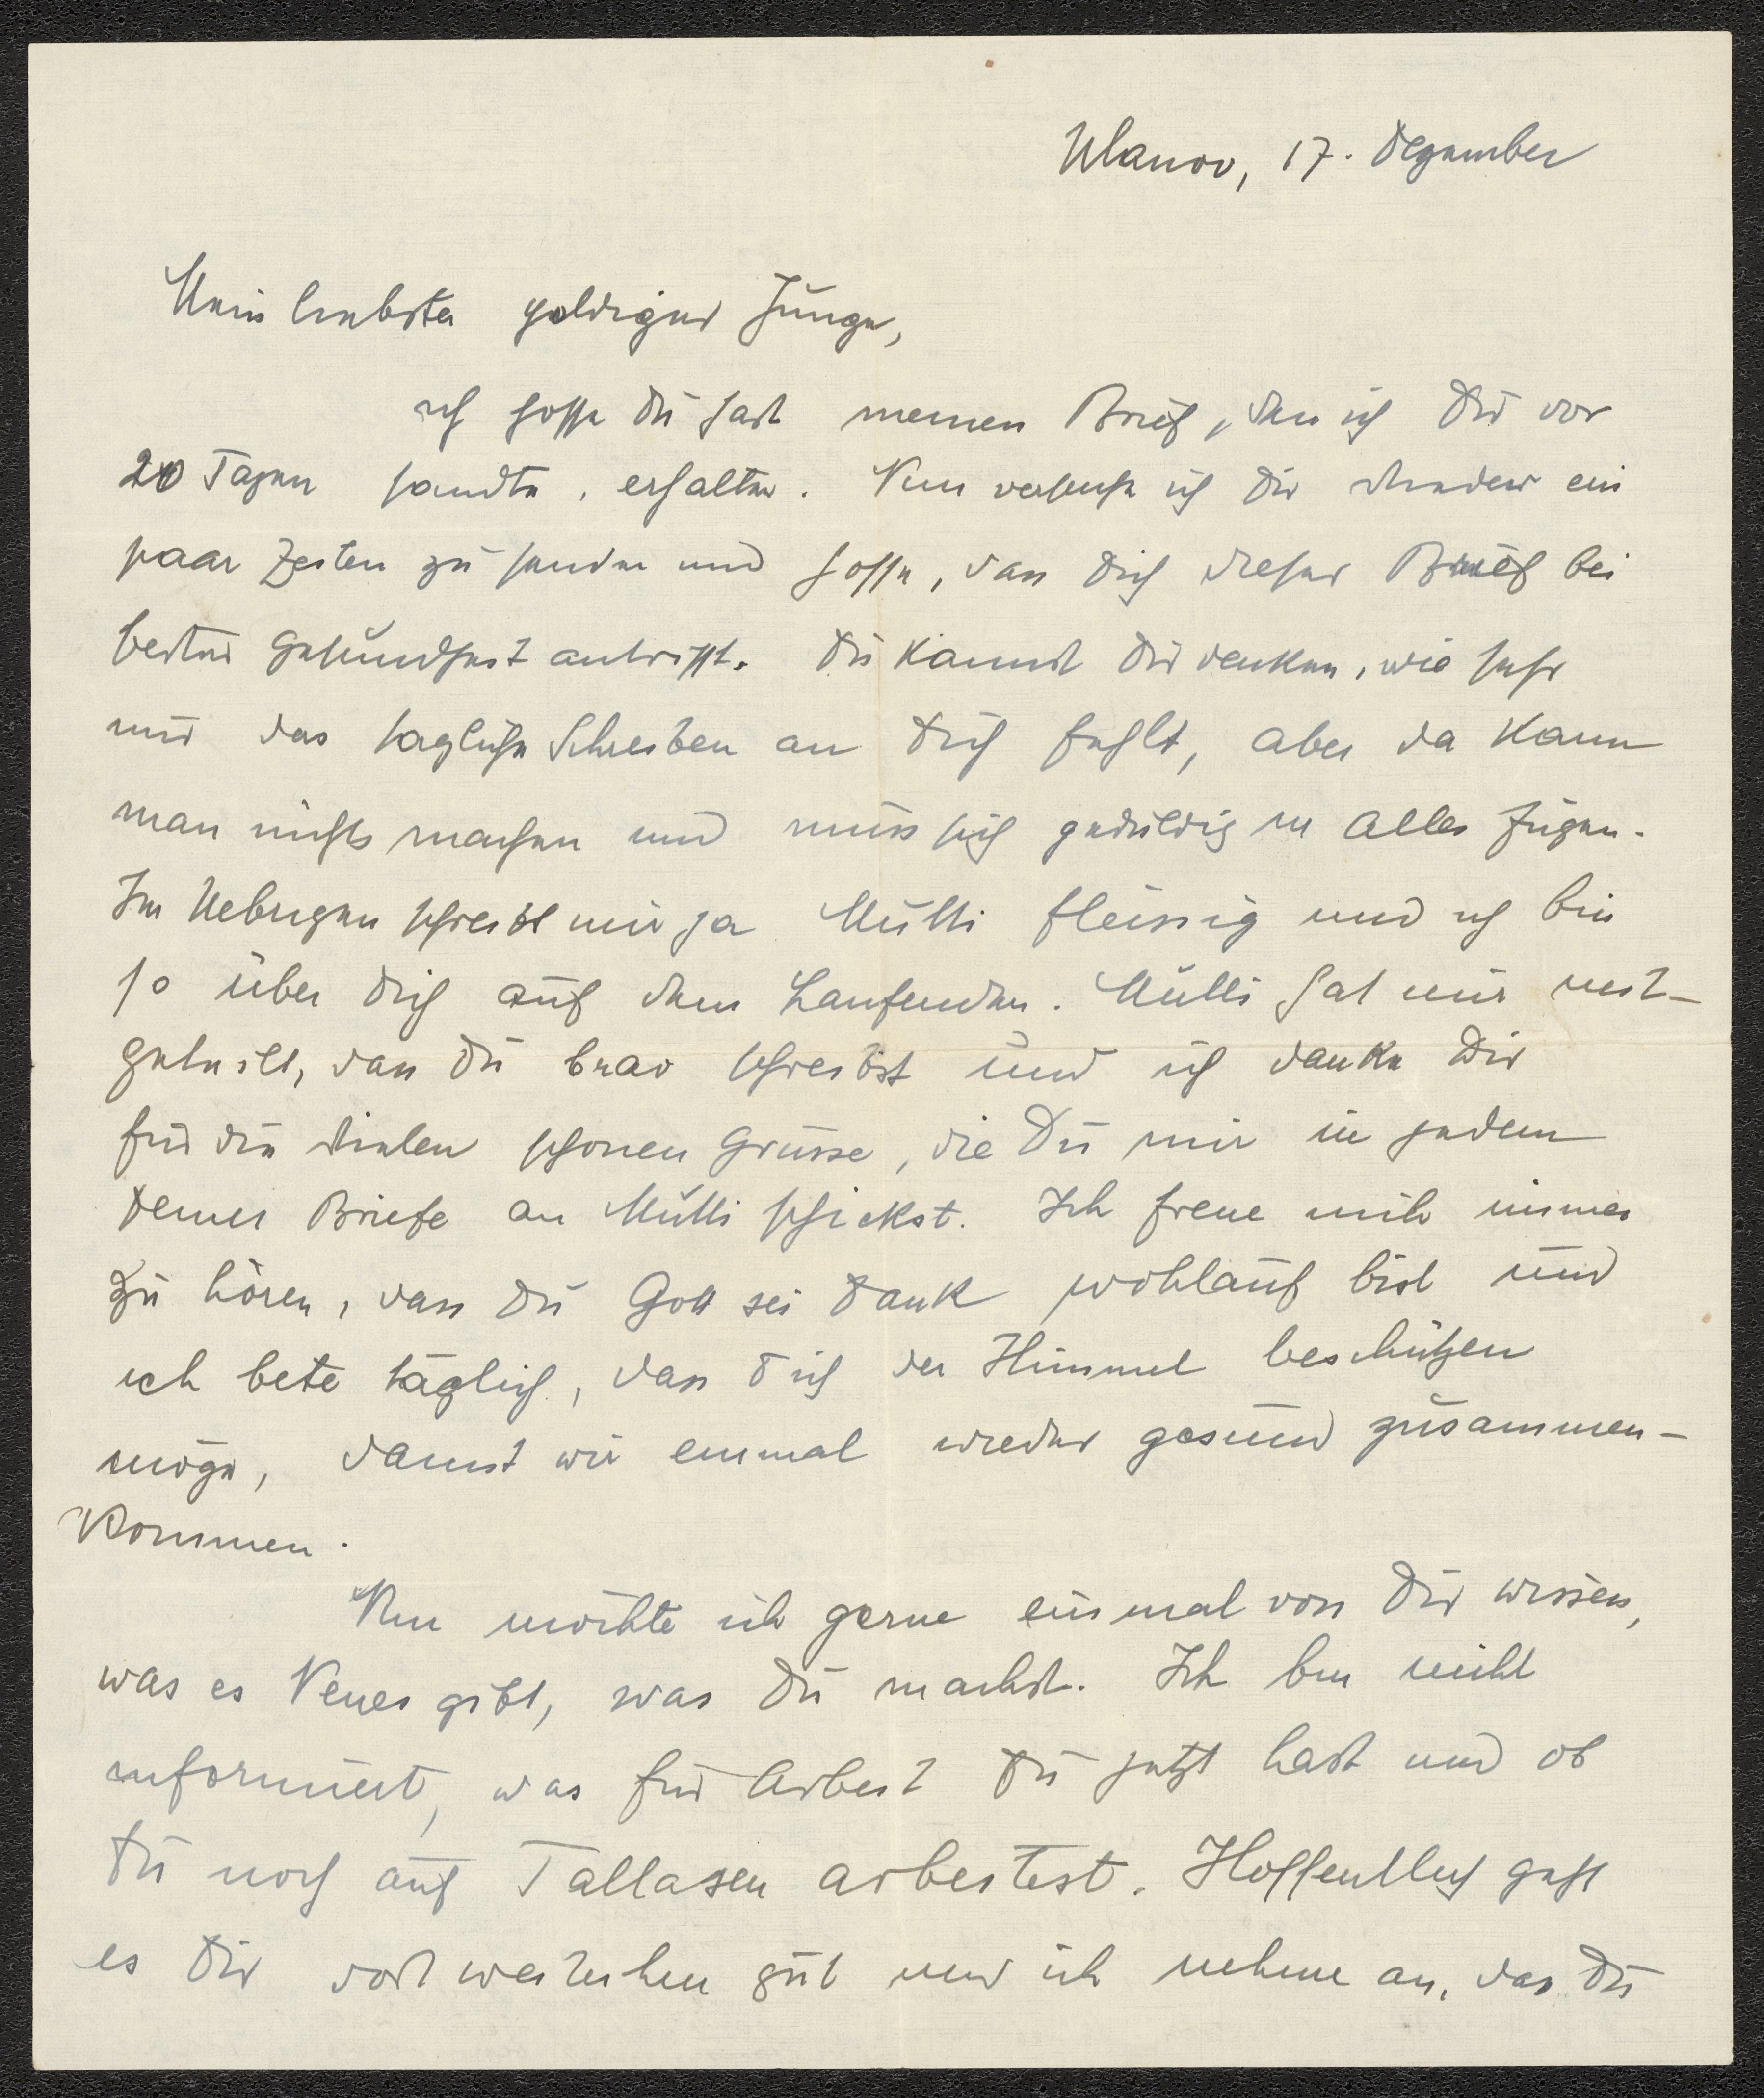 Ulanov, 17. Dezember
Mein liebster goldiger Junge,
ich hoffe Du hast meinen Brief, den ich Dir vor
20 Tagen sandte, erhalten. Nun versuche ich Dir wieder ein
paar Zeilen zu senden und hoffe, dass Dich dieser Brief bei
bester Gesundheit antrifft. Du kannst Dir denken, wie sehr
mir das tägliche Schreiben an Dich fehlt, aber da kann
man nichts machen und muss sich geduldig in alles fügen.
Im Uebrigen schreibt mir ja Mutti fleissig und ich bin
so über Dich auf dem Laufenden. Mutti hat mir mit-
geteilt, dass Du brav schreibst und ich danke Dir
für die vielen schönen Grüsse, die Du mir in jedem
Deiner Briefe an Mutti schickst. Ich freue mich immer
zu hören, dass Du Gott sei Dank wohlauf bist und
ich bete täglich, dass Dich der Himmel beschützen
möge, damit wir einmal wieder gesund zusammen-
kommen.
Nun möchte ich gerne einmal von Dir wissen,
was es Neues gibt, was Du machst. Ich bin nicht
informiert, was für Arbeit Du jetzt hast und ob
Du noch auf Tallasen arbeitest. Hoffentlich geht
es Dir dort weiterhin gut und ich nehme an, dass Du